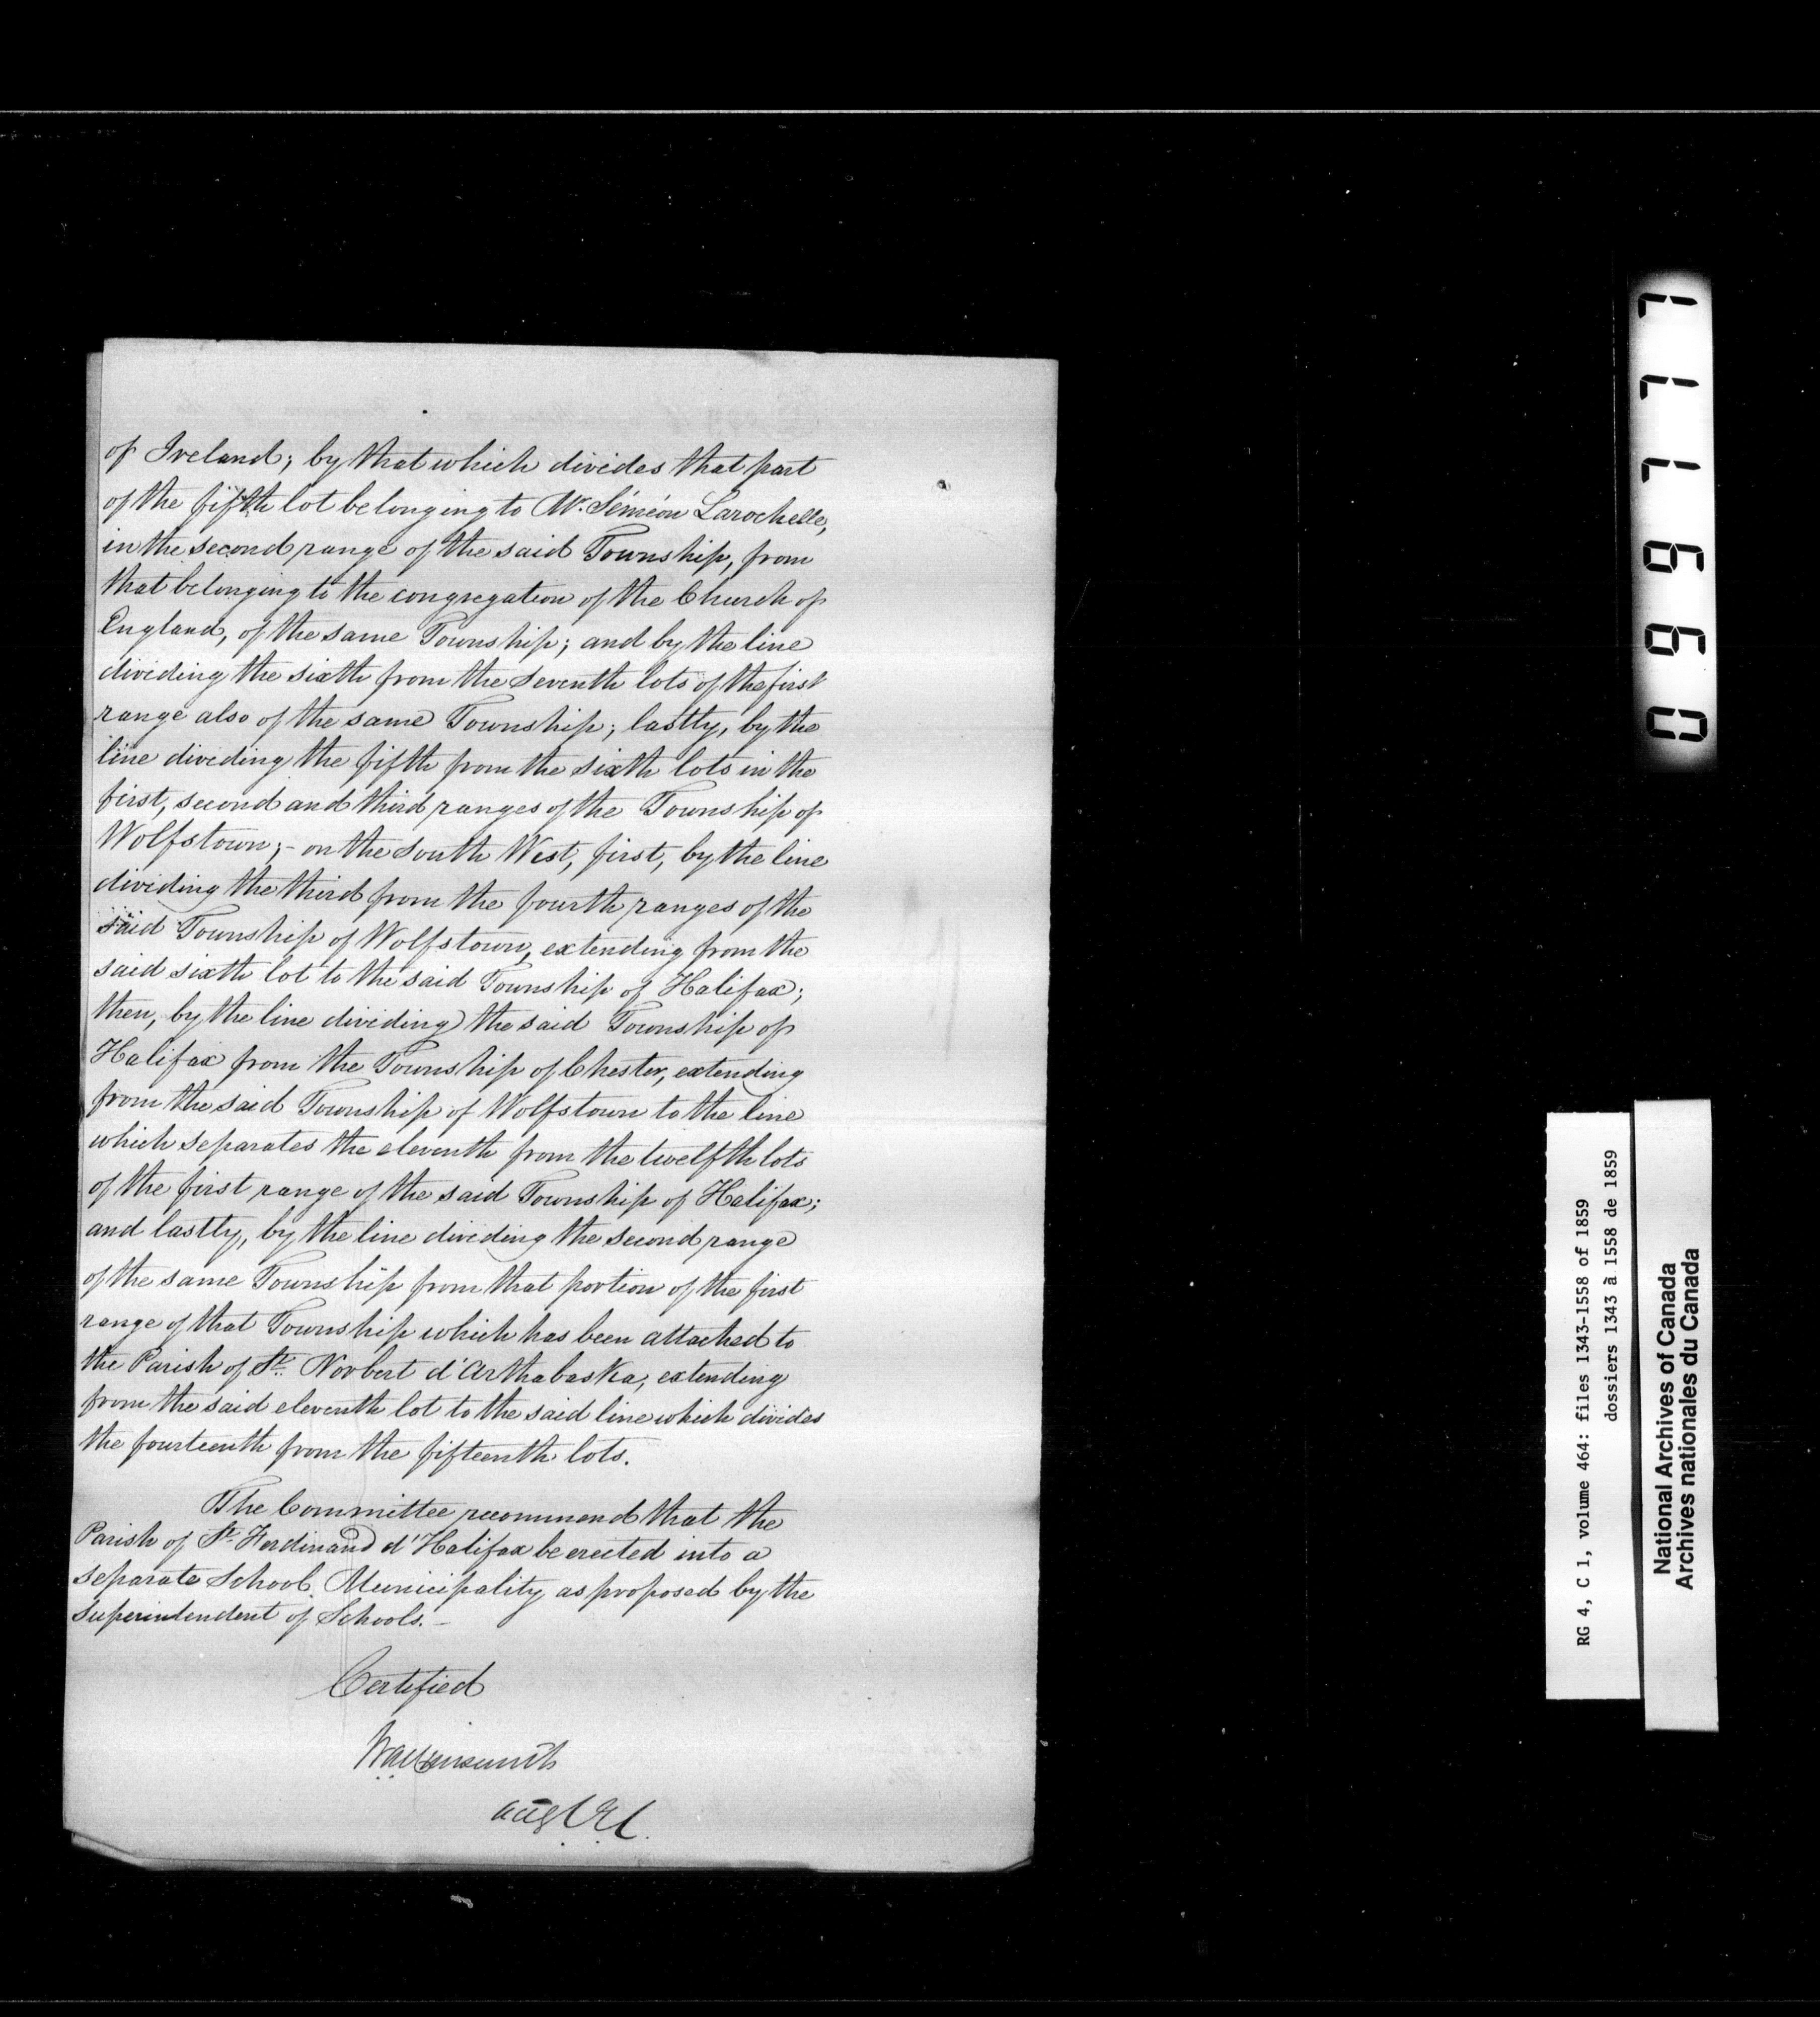 of Ireland; by that which divides that part
of the fifth lot belonging to Mr. Siméon Larochelle,
in the second range of the said Township, from
that belonging to the congregation of the Church of
England, of the same Township; and by the line
dividing the sixth from the seventh lots of the first
range also of the same Township; lastly, by the
line dividing the fifth from the sixth lots in the
first, second and third ranges of the Township of
Wolfstown;- on the South West, first, by the line
dividing the third from the fourth ranges of the
said Township of Wolfstown, extending from the
said sixth lot to the said Township of Halifax;
then, by the line dividing the said Township of
Halifax from the Township of Chester, extending
from the said Township of Wolfstown to the line
which separates the eleventh from the twelfth lots
of the first range of the said Township of Halifax;
and lastly, by the line dividing the second range
of the same Township from that portion of the first
range of that Township which has been attached to
the Parish of St. Norbert d'Arthabaska, extending
from the said eleventh lot to the said line which divides
the fourteenth from the fifteenth lots.
The Committee recommend that the
Parish of St. Ferdinand d'Halifax be erected into a
separate School Municipality as proposed by the
Superintendent of Schools.-
Certified
099777
RG 4, C 1, volume 464: files 1343-1558 of 1859
dossiers 1343 à 1558 de 1859
National Archives of Canada
Archives nationales du Canada